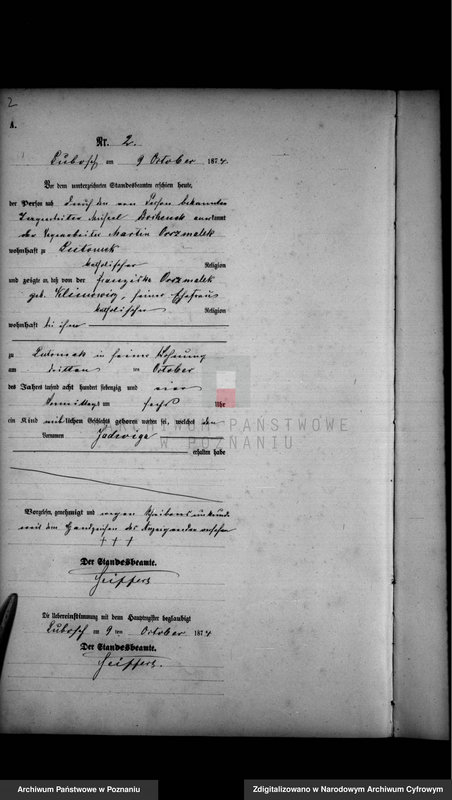 2
A.
Nr. 2.
Lubosch am 9 October 1874.
Vor dem unterzeichneten Standesbeamten erschien heute,
der Person nach durch den von Person bekannten
anerkannt
der Martin
wohnhaft zu Lutomek
katholischer Religion
und zeigte an, daß von der Franziska
geb. seiner Ehefrau
katholischer Religion
wohnhaft bei ihm
zu Lutomek in seiner Wohnung
am dritten ten October
des Jahres tausend acht hundert siebenzig und vier
Vormittags um sechs Uhr
ein Kind weiblichen Geschlechts geboren worden sei, welches den
Vornamen Jadwiga
erhalten habe
ARCHIWUM PAŃSTWOWE
W POZNANIU
Vorgelesen, genehmigt und wegen Schreibensunkunde
mit dem Handzeichen des Anzeigenden versehen
† † †
Der Standesbeamte.
Seiffert
Die Uebereinstimmung mit dem Hauptregister beglaubigt
Lubosch am 9 ten October 1874
Der Standesbeamte.
Seiffert.
Archiwum Państwowe w Poznaniu
Zdigitalizowano w Narodowym Archiwum Cyfrowym